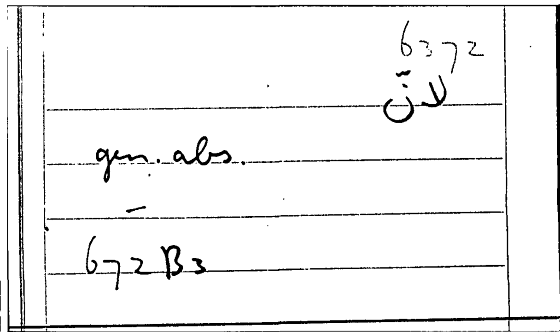 6372
لأنّ
gen. abs.
–
672 B3